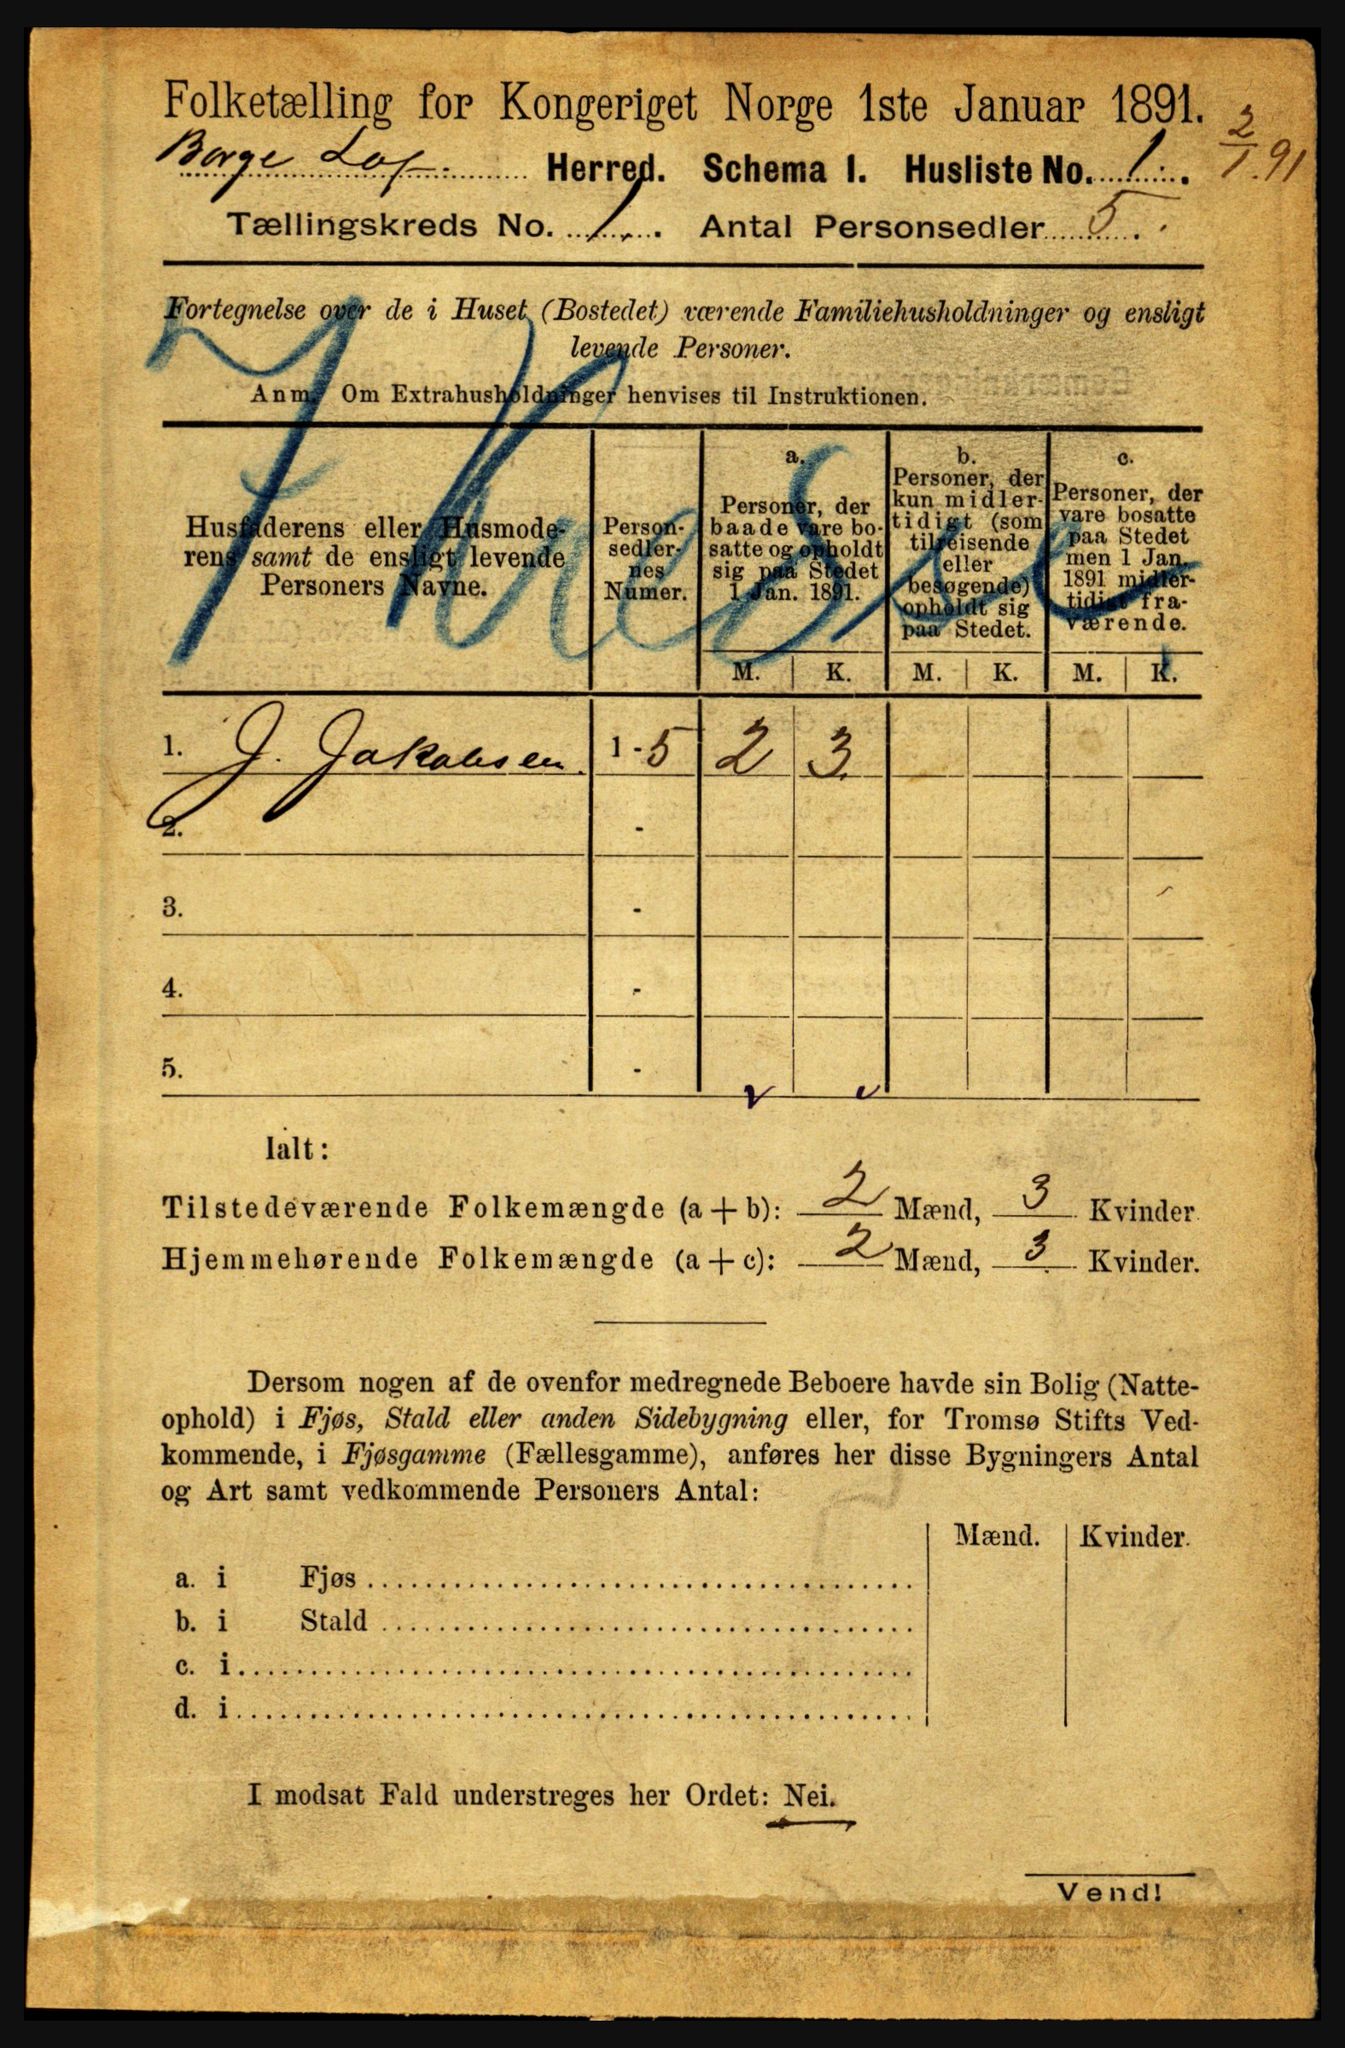 Folketælling for Kongeriget Norge 1ste Januar 1891.
2/1 91
Borge Lof. Herred. Schema I. Husliste No. 1.
Tællingskreds No. 1. Antal Personsedler 5.
Fortegnelse over de i Huset (Bostedet) værende Familiehusholdninger og ensligt
levende Personer.
Anm. Om Extrahusholdninger henvises til Instruktionen.
Husfaderens eller Husmode-
rens samt de ensligt levende
Personers Navne.
Person-
sedler-
nes
Numer.
a.
Personer, der
baade vare bo-
satte og opholdt
sig paa Stedet
1 Jan. 1891.
b.
Personer, der
kun midler-
tidigt (som
tilreisende
eller
besøgende)
opholdt sig
paa Stedet.
c.
Personer, der
vare bosatte
paa Stedet
men 1 Jan.
1891 midler-
tidigt fra-
værende.
M. K. M. K. M. K.
1. J. Jakobsen. 1-5 2 3.
2. -
3. -
4. -
5. -
Ialt:
Tilstedeværende Folkemængde (a+b): 2 Mænd, 3 Kvinder.
Hjemmehørende Folkemængde (a+c): 2 Mænd, 3 Kvinder.
Dersom nogen af de ovenfor medregnede Beboere havde sin Bolig (Natte-
ophold) i Fjøs, Stald eller anden Sidebygning eller, for Tromsø Stifts Ved-
kommende, i Fjøsgamme (Fællesgamme), anføres her disse Bygningers Antal
og Art samt vedkommende Personers Antal:
Mænd. Kvinder.
a. i Fjøs
b. i Stald
c. i
d. i
I modsat Fald understreges her Ordet: Nei.
Vend!